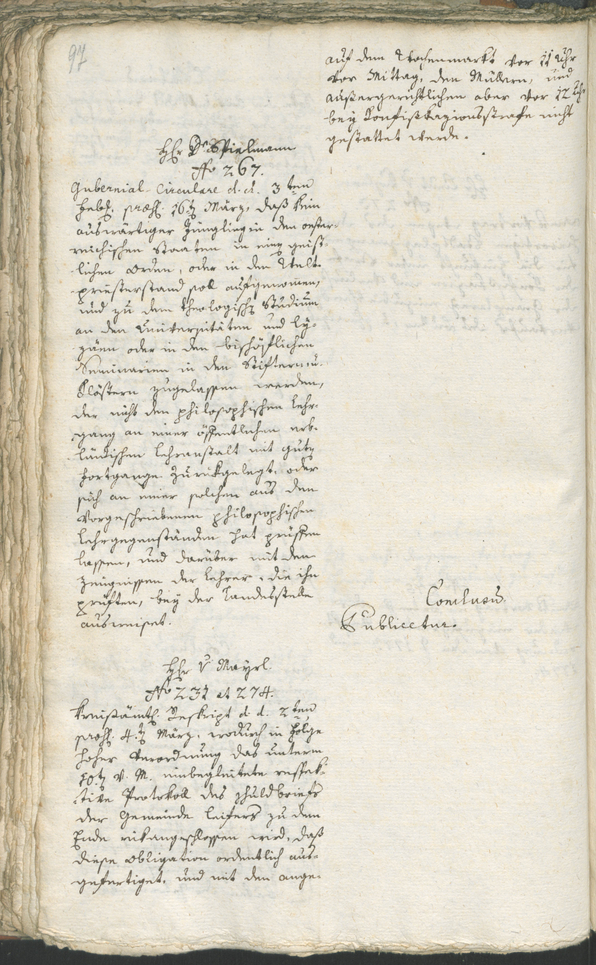 97
auf dem Wochenmarkt vor 11 Uhr
vor Mittag, den Müllern, und
außergerichtlichen aber vor 12 Uhr
bey Konfiskazionsstrafe nicht
gestattet werde.
Hr Dr Spielmann
No 267.
Gubernial-Circulare d. d. 3ten
Feb., præs. 16t März, daß kein
auswärtiger Jüngling in den oester-
reichischen Staaten in einen geist-
lichen Orden, oder in den Welt-
priesterstand soll aufgenommen,
und zu dem theologischen Studium
an den Universitäten und Ly-
zäen oder in den bischöflichen
Seminarien in den Stiftern u.
Klöstern zugelassen werden,
der nicht den philosophischen Lehr-
gang an einer öffentlichen erb-
ländischen Lehranstalt mit gutem
Fortgange zurückgelegt, oder
sich an einer solchen aus den
vorgeschriebenen philosophischen
Lehrgegenständen hat prüffen
lassen, und darüber mit den
Zeugnissen der Lehrer, die ihn
prüften, bey der Landesstelle
ausweiset.
Conclusum
Publicetur.
Hr v Mayrl.
No 232 et 274.
Kreisämtl. Reskript d. d. 2ten
præs. 4t März, wodurch in Folge
hoher Verordnung das unterm
10t v. M. einbegleitete respek-
tive Protokoll des Schuldbriefs
der Gemeinde Leifers zu dem
Ende rükangeschlossen wird, daß
diese Obligation ordentlich aus-
gefertiget, und mit den ange-